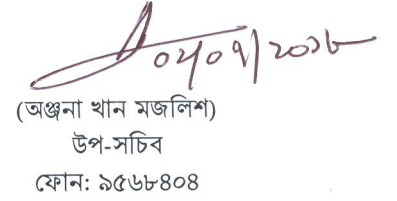 ০২/০৭/২০১৮
(অঞ্জনা খান মজলিশ)
উপ-সচিব
ফোন: ৯৫৬৮৪০৪